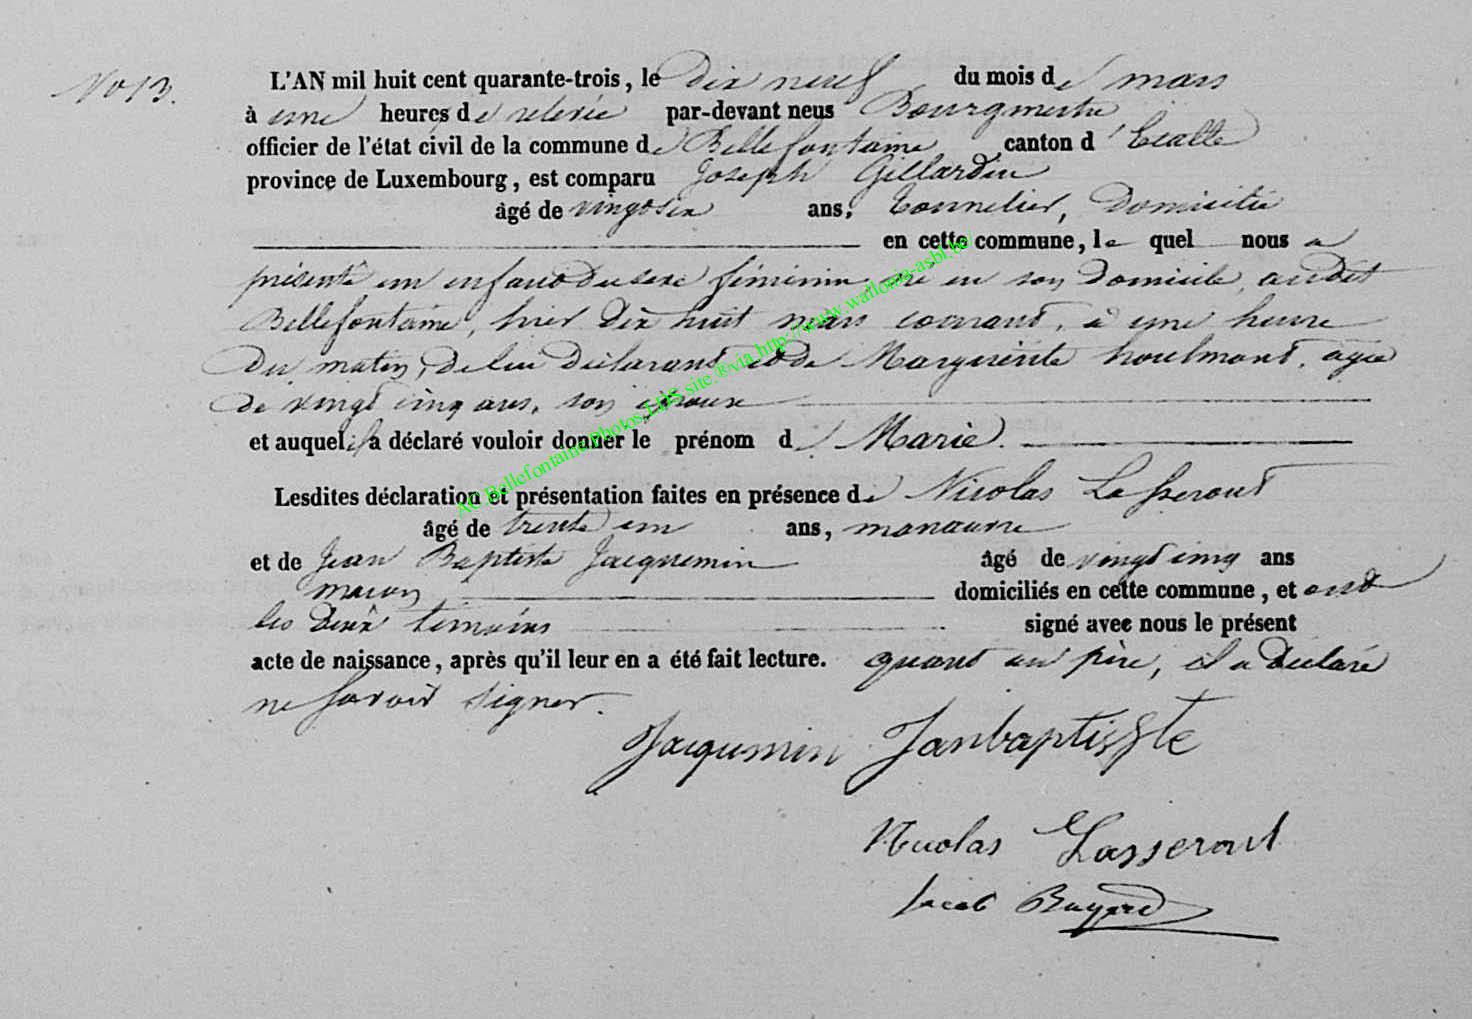 No 13.
L'AN mil huit cent quarante-trois, le Dix neuf du mois de mars
à une heures de relevée par-devant nous Bourgmestre
officier de l'état civil de la commune de Bellefontaine canton d' Etalle
province de Luxembourg, est comparu Joseph Gillardin
âgé de vingt six ans, Tonnelier, Domicilié
en cette commune, lequel nous a
présenté un enfant du sexe féminin, né en son Domicile, audit
Bellefontaine, hier Dix huit mars courant, à une heure
Du matin, De lui Déclarant et de Marguerite houlmont, agée
De vingt cinq ans, son épouse
et auquel il a déclaré vouloir donner le prénom de Marie.
Lesdites déclaration et présentation faites en présence de Nicolas Lasseront
âgé de trente un ans, manœuvre
et de Jean Baptiste Jacquemin âgé de vingt cinq ans
maçon domiciliés en cette commune, et ont
les Deux témoins signé avec nous le présent
acte de naissance, après qu'il leur en a été fait lecture. quant au père, il a Déclaré
ne savoir signer.
Jaqumin Janbaptisste
Nicolas Lasseront
Jacob Bayard
AC Bellefontaine Photos LDS site ®via http://www.wallonia-asbl.be/